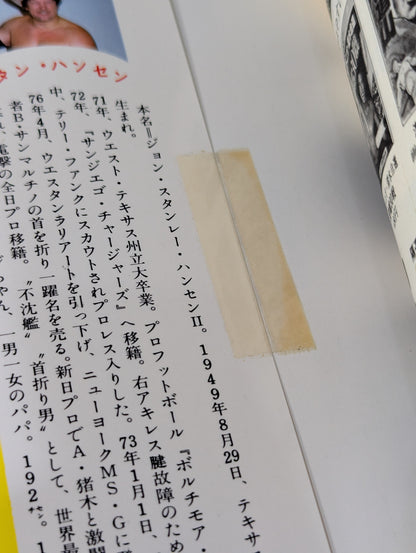 タン・ハンセン
本名=ジョン・スタンレー・ハンセンII。1949年8月29日、テキサ
生まれ。
71年、ウエスト・テキサス州立大卒業。プロフットボール『ボルチモア・
72年、『サンジエゴ・チャージャーズ』へ移籍。右アキレス腱故障のため
中、テリー・ファンクにスカウトされプロレス入りした。73年1月1日、
76年4月、ウエスタンラリアートを引っ下げ、ニューヨークMS・Gに
者B・サンマルチノの首を折り一躍名を売る。新日プロでA・猪木と激闘
電撃の全日プロ移籍。〝不沈艦〟〝首折り男〟として、世界最
ちゃん、一男一女のパパ。192㌢。1